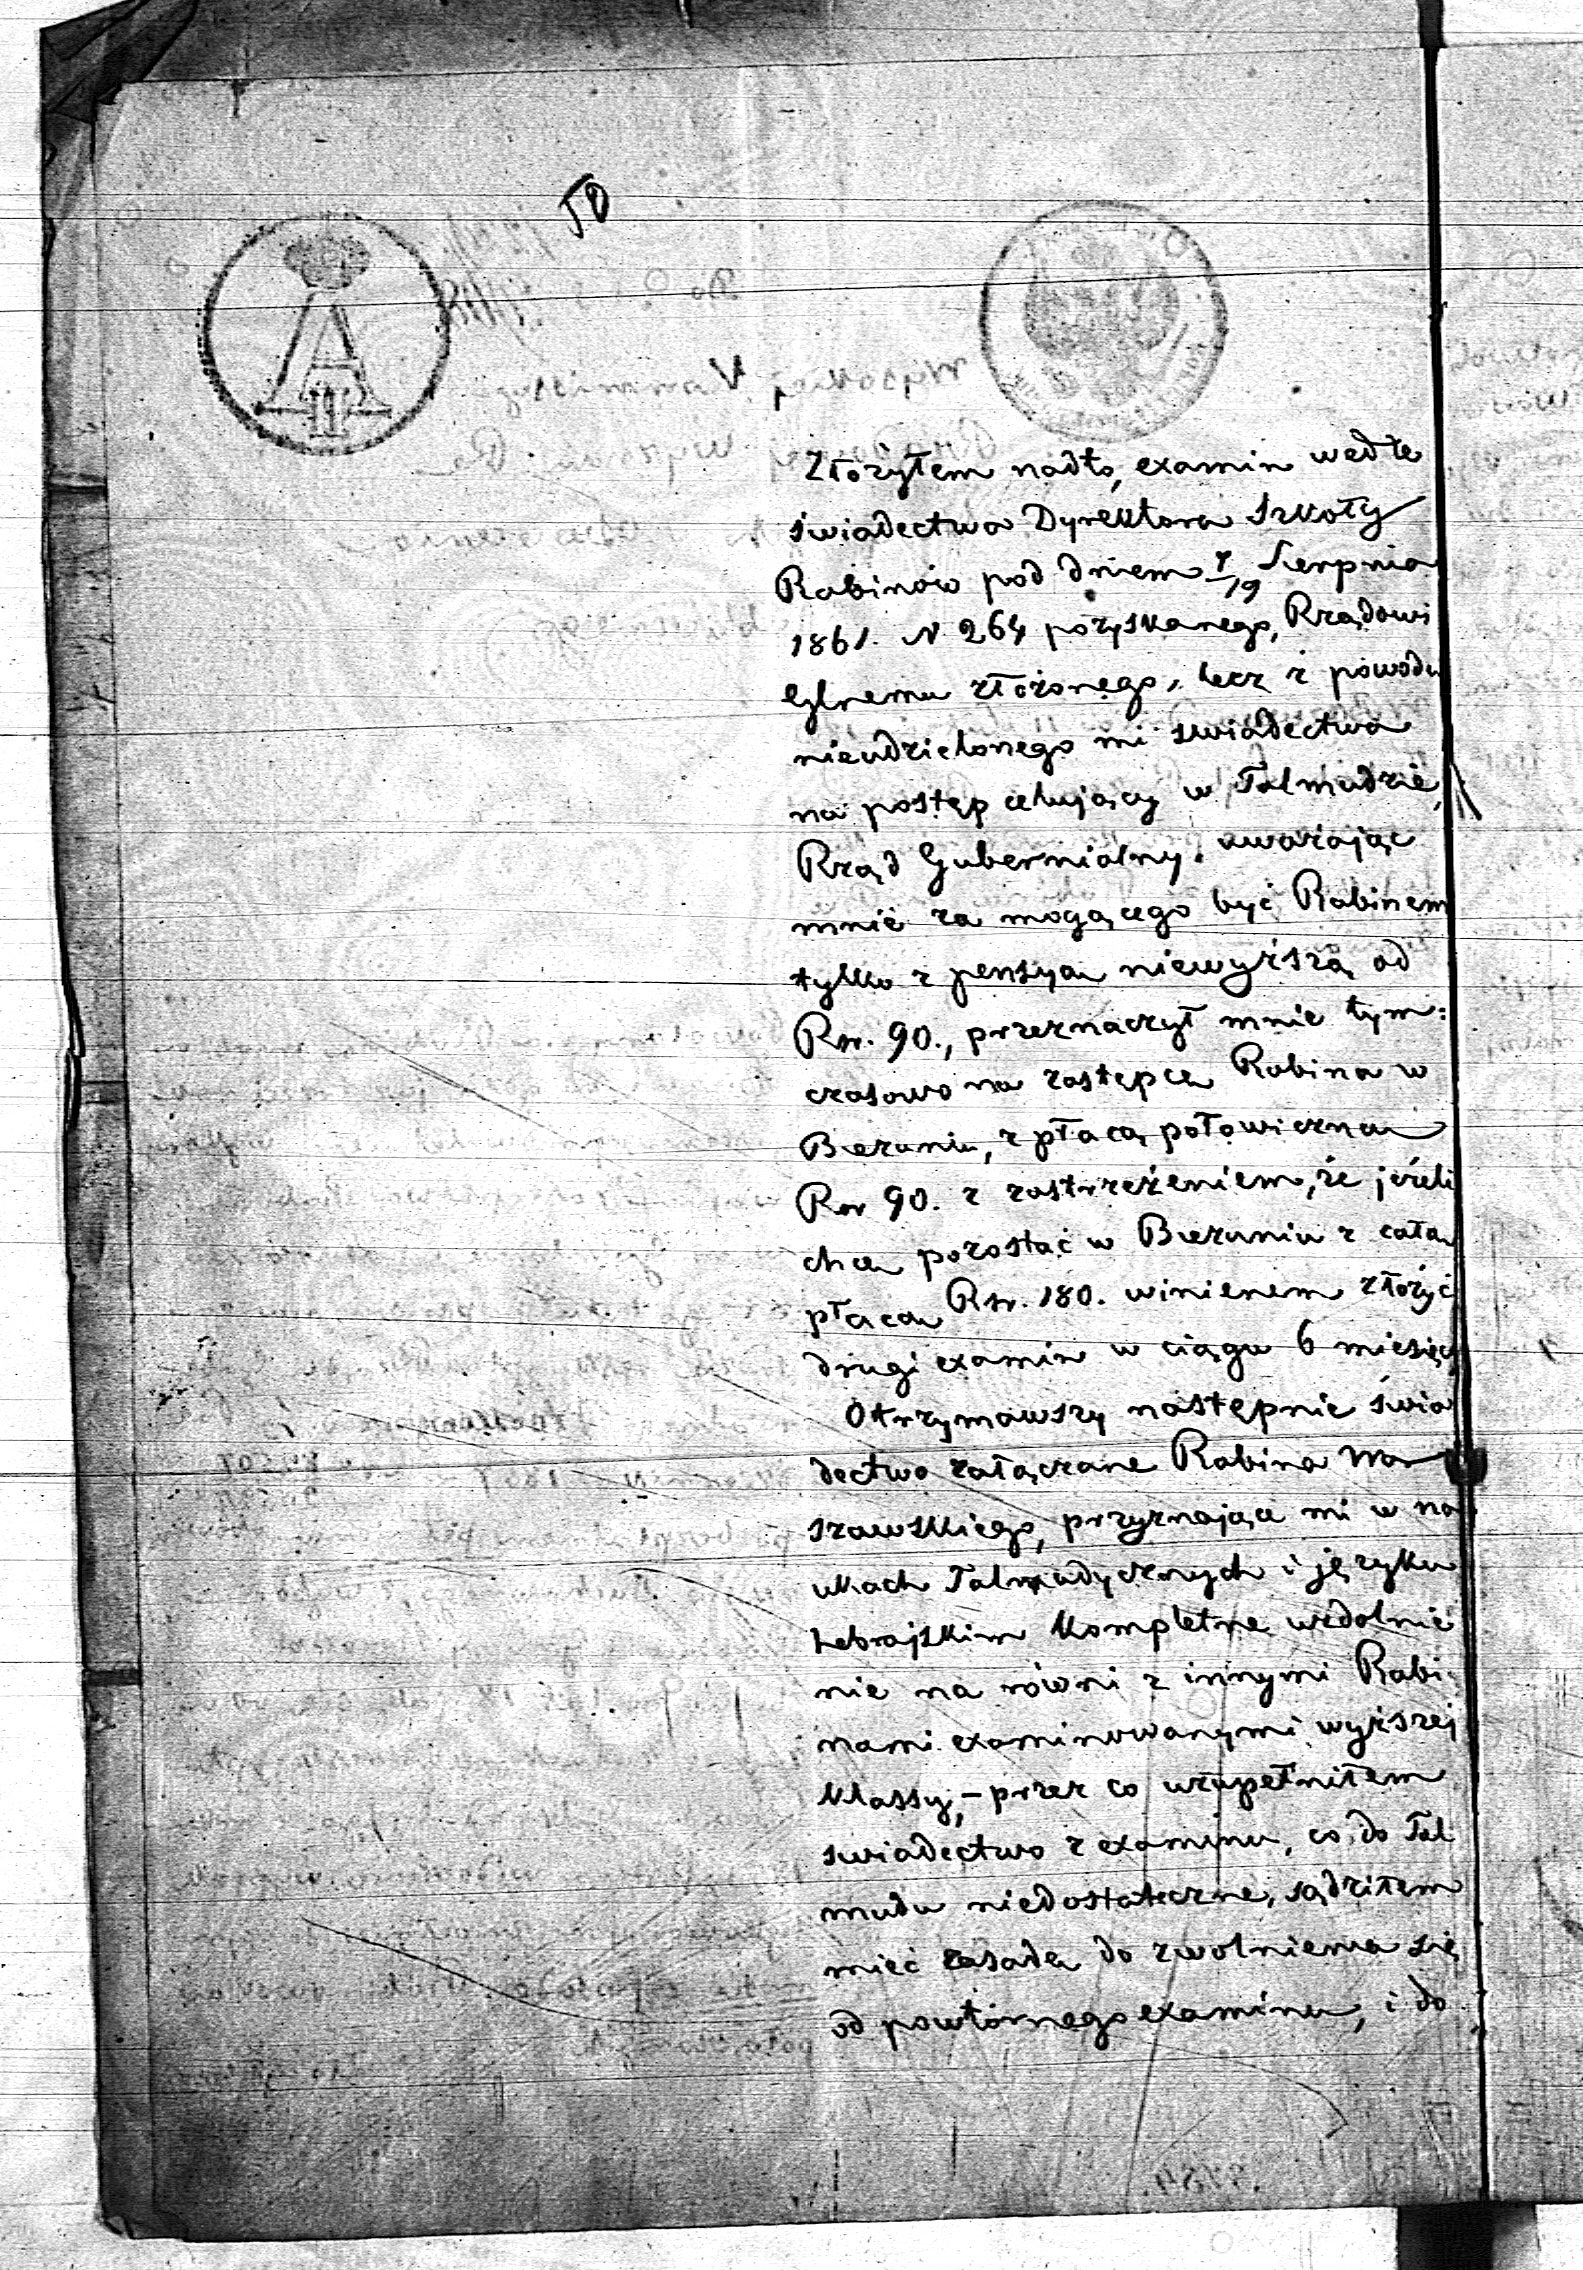 Złożyłem nadto, examin wedle
świadectwa Dyrektora Szkoły
Rabinów pod dniem 7/19 Sierpnia
1861. N 264 pozyskanego, Rządowi
Glnemu złożonego, lecz z powodu
nieudzielonego mi świadectwa
na postęp celujący w Talmudzie,
Rząd Gubernialny uważając
mnie za mogącego być Rabinem
tylko z pensyą niewyższą od
Rsr. 90., przeznaczył mnie tym:
czasowo na zastępcę Rabina w
Bieżuniu, z płacą połowiczną
Rsr 90. z zastrzeżeniem, że jeżeli
chcę pozostać w Bieżuniu z całą
płacą Rsr. 180. winienem złożyć
drugi examin w ciągu 6 miesięcy
Otrzymawszy następnie świa
dectwo załączane Rabina War
szawskiego, przyznające mi w na
ukach Talmudycznych i języku
hebrajskim kompletne uzdolnie
nie na równi z innymi Rabi
nami examinowanymi wyższej
klassy, – przez co uzupełniłem
świadectwo z examinu, co do Tal
mudu niedostateczne, sądziłem
mieć zasadę do zwolnienia się
od powtórnego examinu, i do